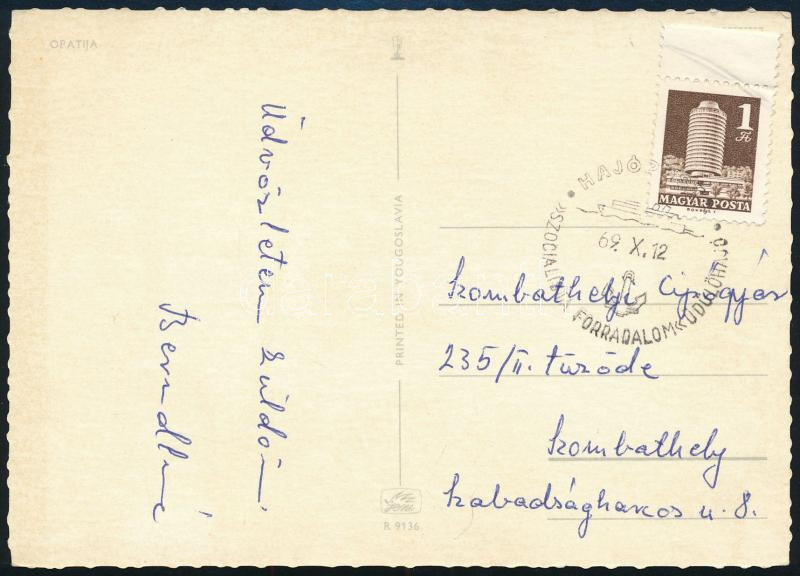 OPATIJA
Üdvözletem küldöm
Berndlné
PRINTED IN YOUGOSLAVIA
R 9136
1
Ft
MAGYAR POSTA
HAJÓ
69. X. 12
»SZOCIALI
FORRADALOM« ÜDÜLŐHAJÓ
Szombathelyi Cipőgyár
235/II. tűzöde
Szombathely
Szabadságharcos u. 8.